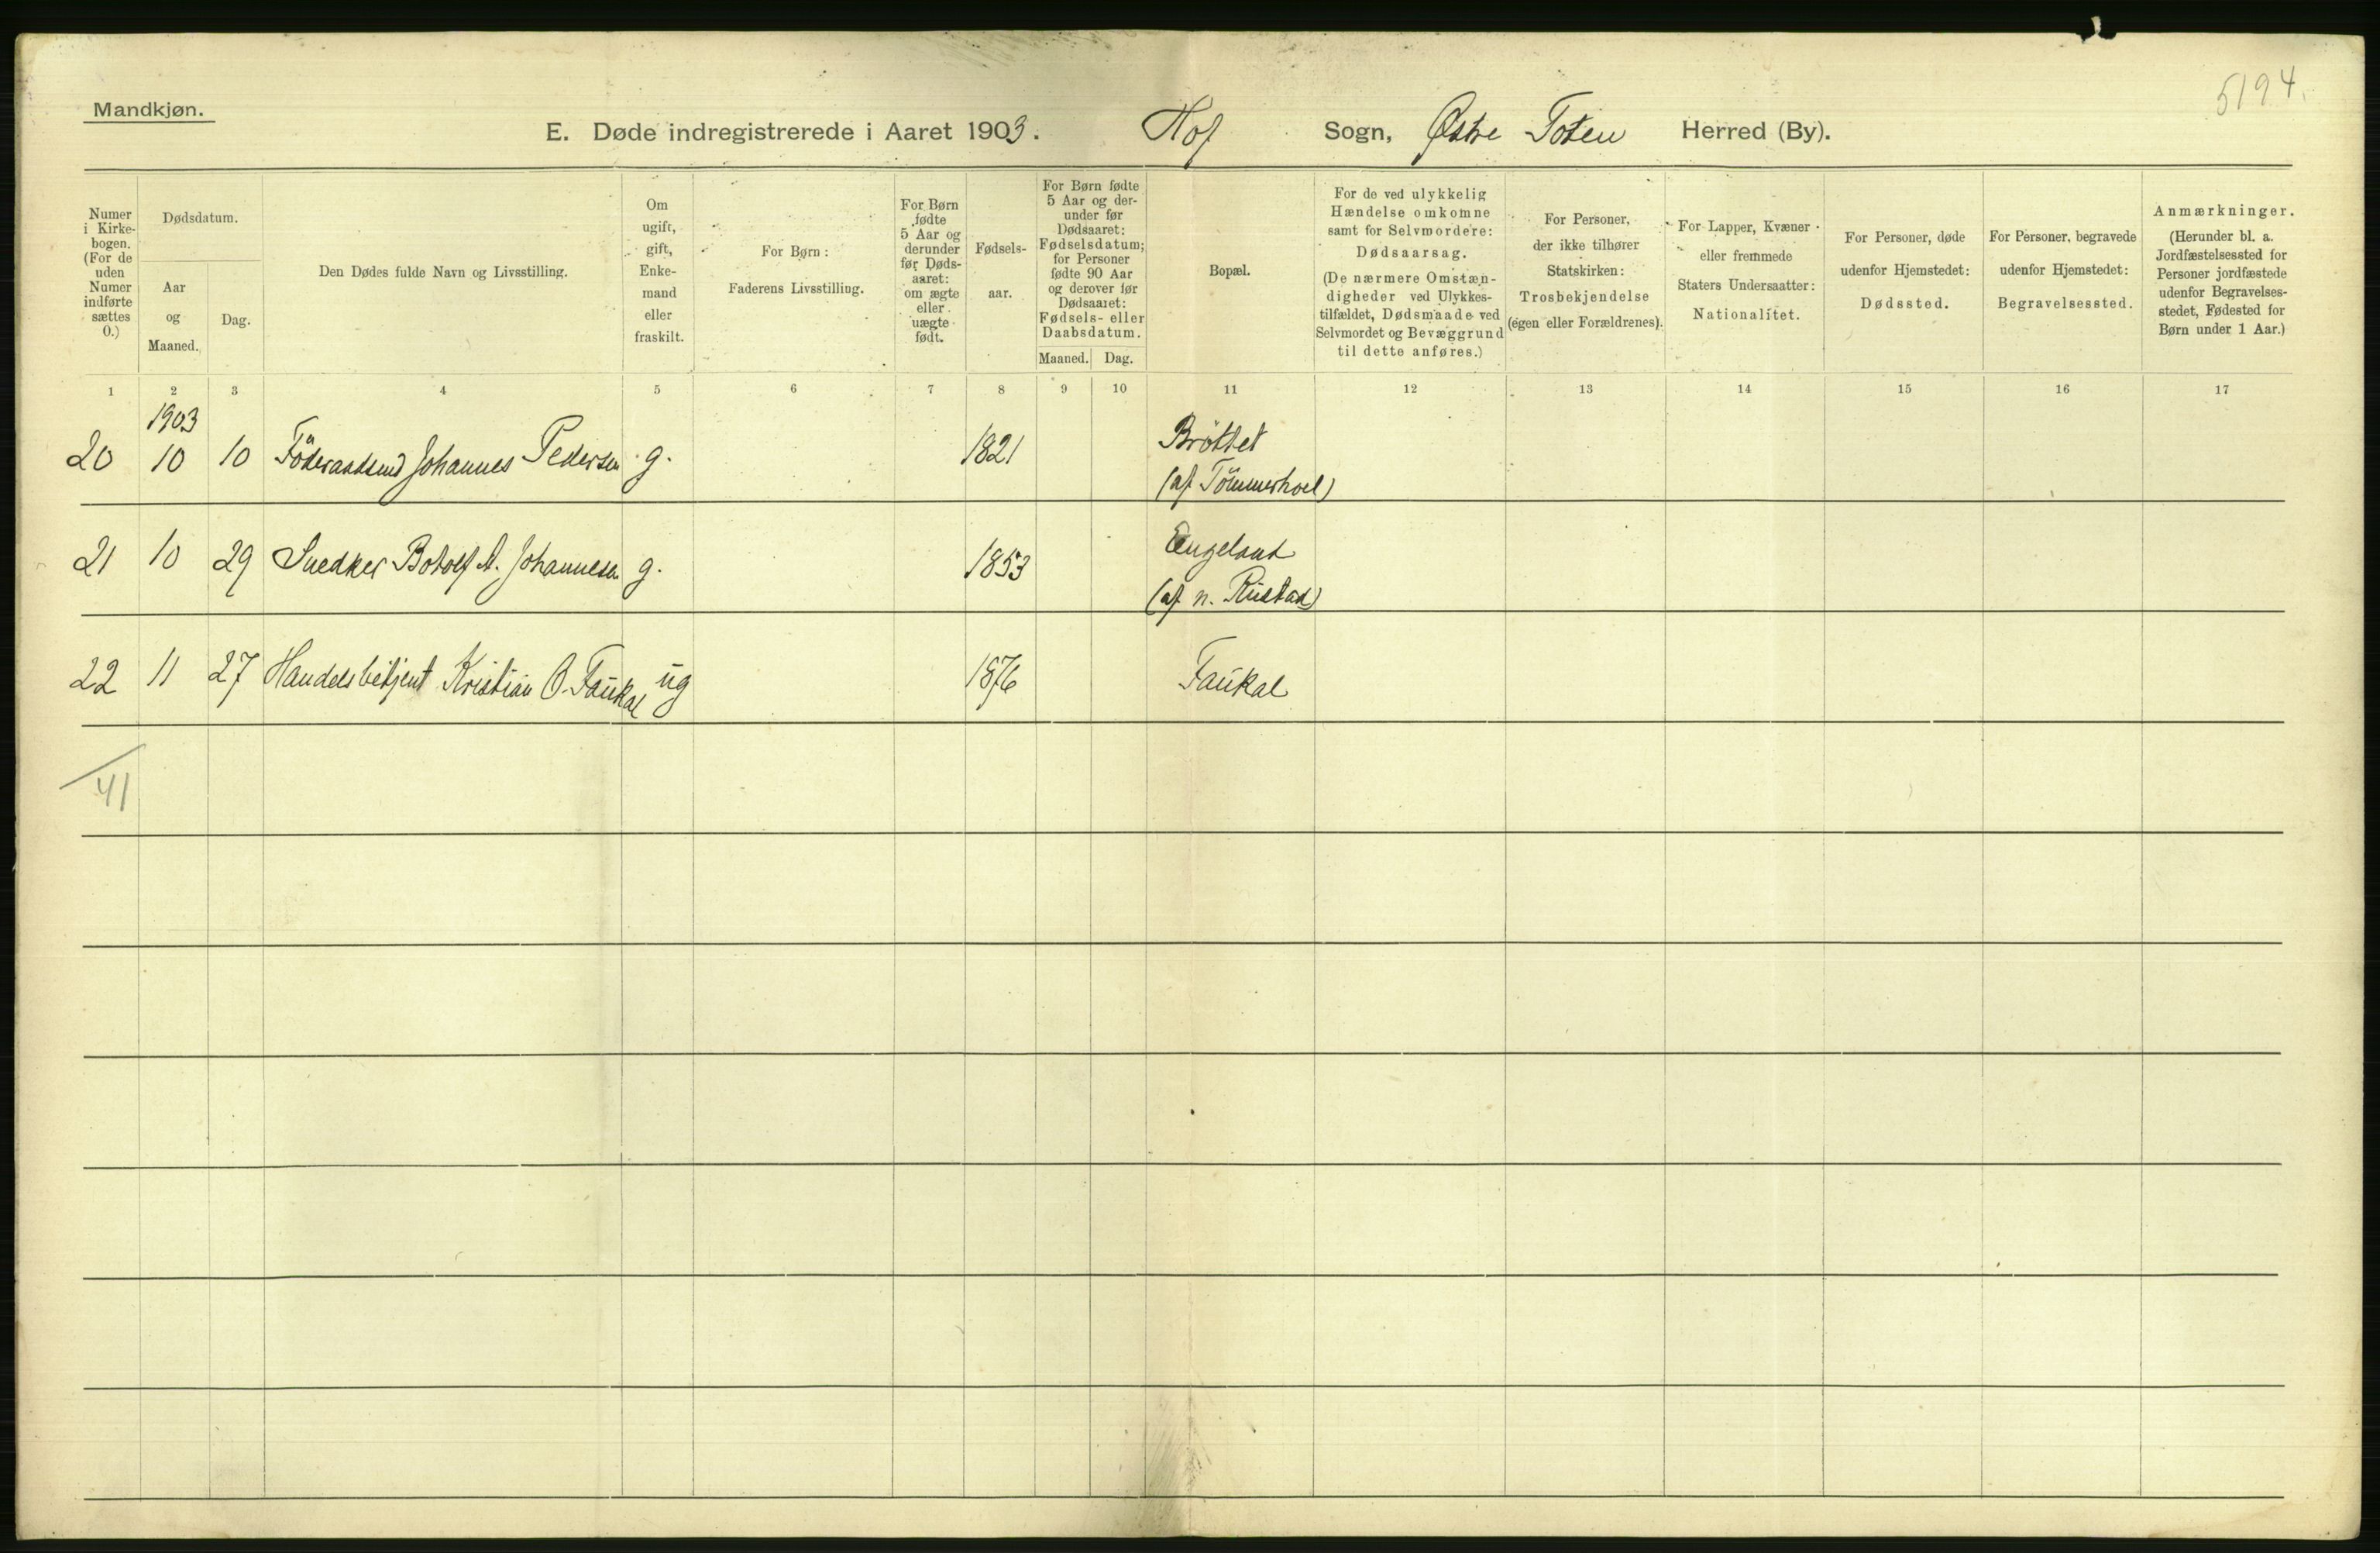 5194.
Mandkjøn.
E. Døde indregistrerede i Aaret 1903. Hof Sogn, Østre Toten Herred (By).
Numer
i Kirke-
bogen.
(For de
uden
Numer
indførte
sættes
0.)
Dødsdatum.
Aar
og
Maaned.
Dag.
Den Dødes fulde Navn og Livsstilling.
Om
ugift,
gift,
Enke-
mand
eller
fraskilt.
For Børn:
Faderens Livsstilling.
For Børn
fødte
5 Aar og
derunder
før Døds-
aaret:
om ægte
eller
uægte
født.
Fødsels-
aar.
For Børn fødte
5 Aar og der-
under før
Dødsaaret:
Fødselsdatum;
for Personer
fødte 90 Aar
og derover før
Dødsaaret:
Fødsels- eller
Daabsdatum.
Maaned. Dag.
Bopæl.
For de ved ulykkelig
Hændelse omkomne
samt for Selvmordere:
Dødsaarsag.
(De nærmere Omstæn-
digheder ved Ulykkes-
tilfældet, Dødsmaade ved
Selvmordet og Bevæggrund
til dette anføres.)
For Personer,
der ikke tilhører
Statskirken:
Trosbekjendelse
(egen eller Forældrenes).
For Lapper, Kvæner
eller fremmede
Staters Undersaatter:
Nationalitet.
For Personer, døde
udenfor Hjemstedet:
Dødssted.
For Personer, begravede
udenfor Hjemstedet:
Begravelsessted.
Anmærkninger.
(Herunder bl. a.
Jordfæstelsessted for
Personer jordfæstede
udenfor Begravelses-
stedet, Fødested for
Børn under 1 Aar.)
1 2 3 4 5 6 7 8 9 10 11 12 13 14 15 16 17
1903
20 10 10 Föderaadsmd Johannes Pedersen g. 1821 Bröttet
(af Tömmerhoel)
21 10 29 Snedker Botolf A. Johannesen g. 1853 Engeland
(af n. Rustad)
22 11 27 Handelsbetjent Kristian O. Faukal ug 1876 Faukal
41